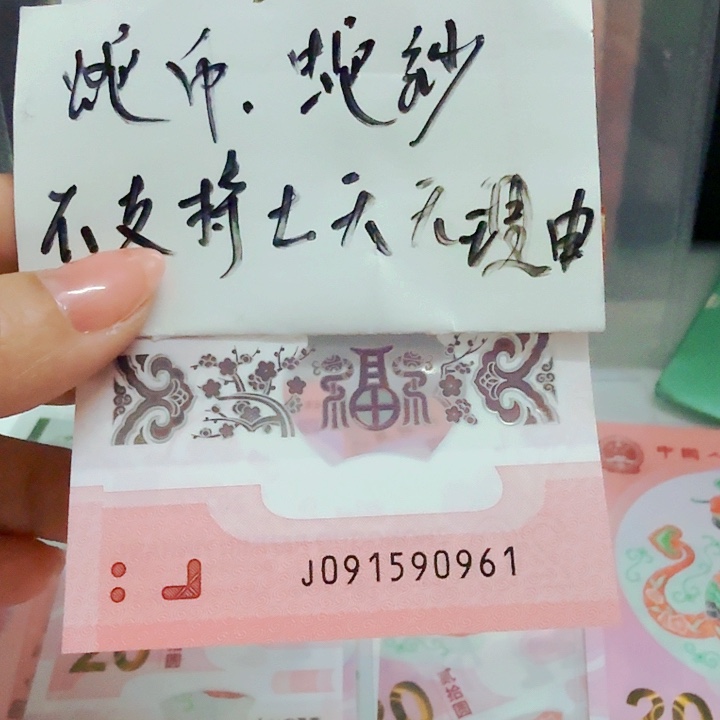 蛇币.蛇钞
不支持七天无理由
福
J091590961
中国人
20
20
贰拾圆
20